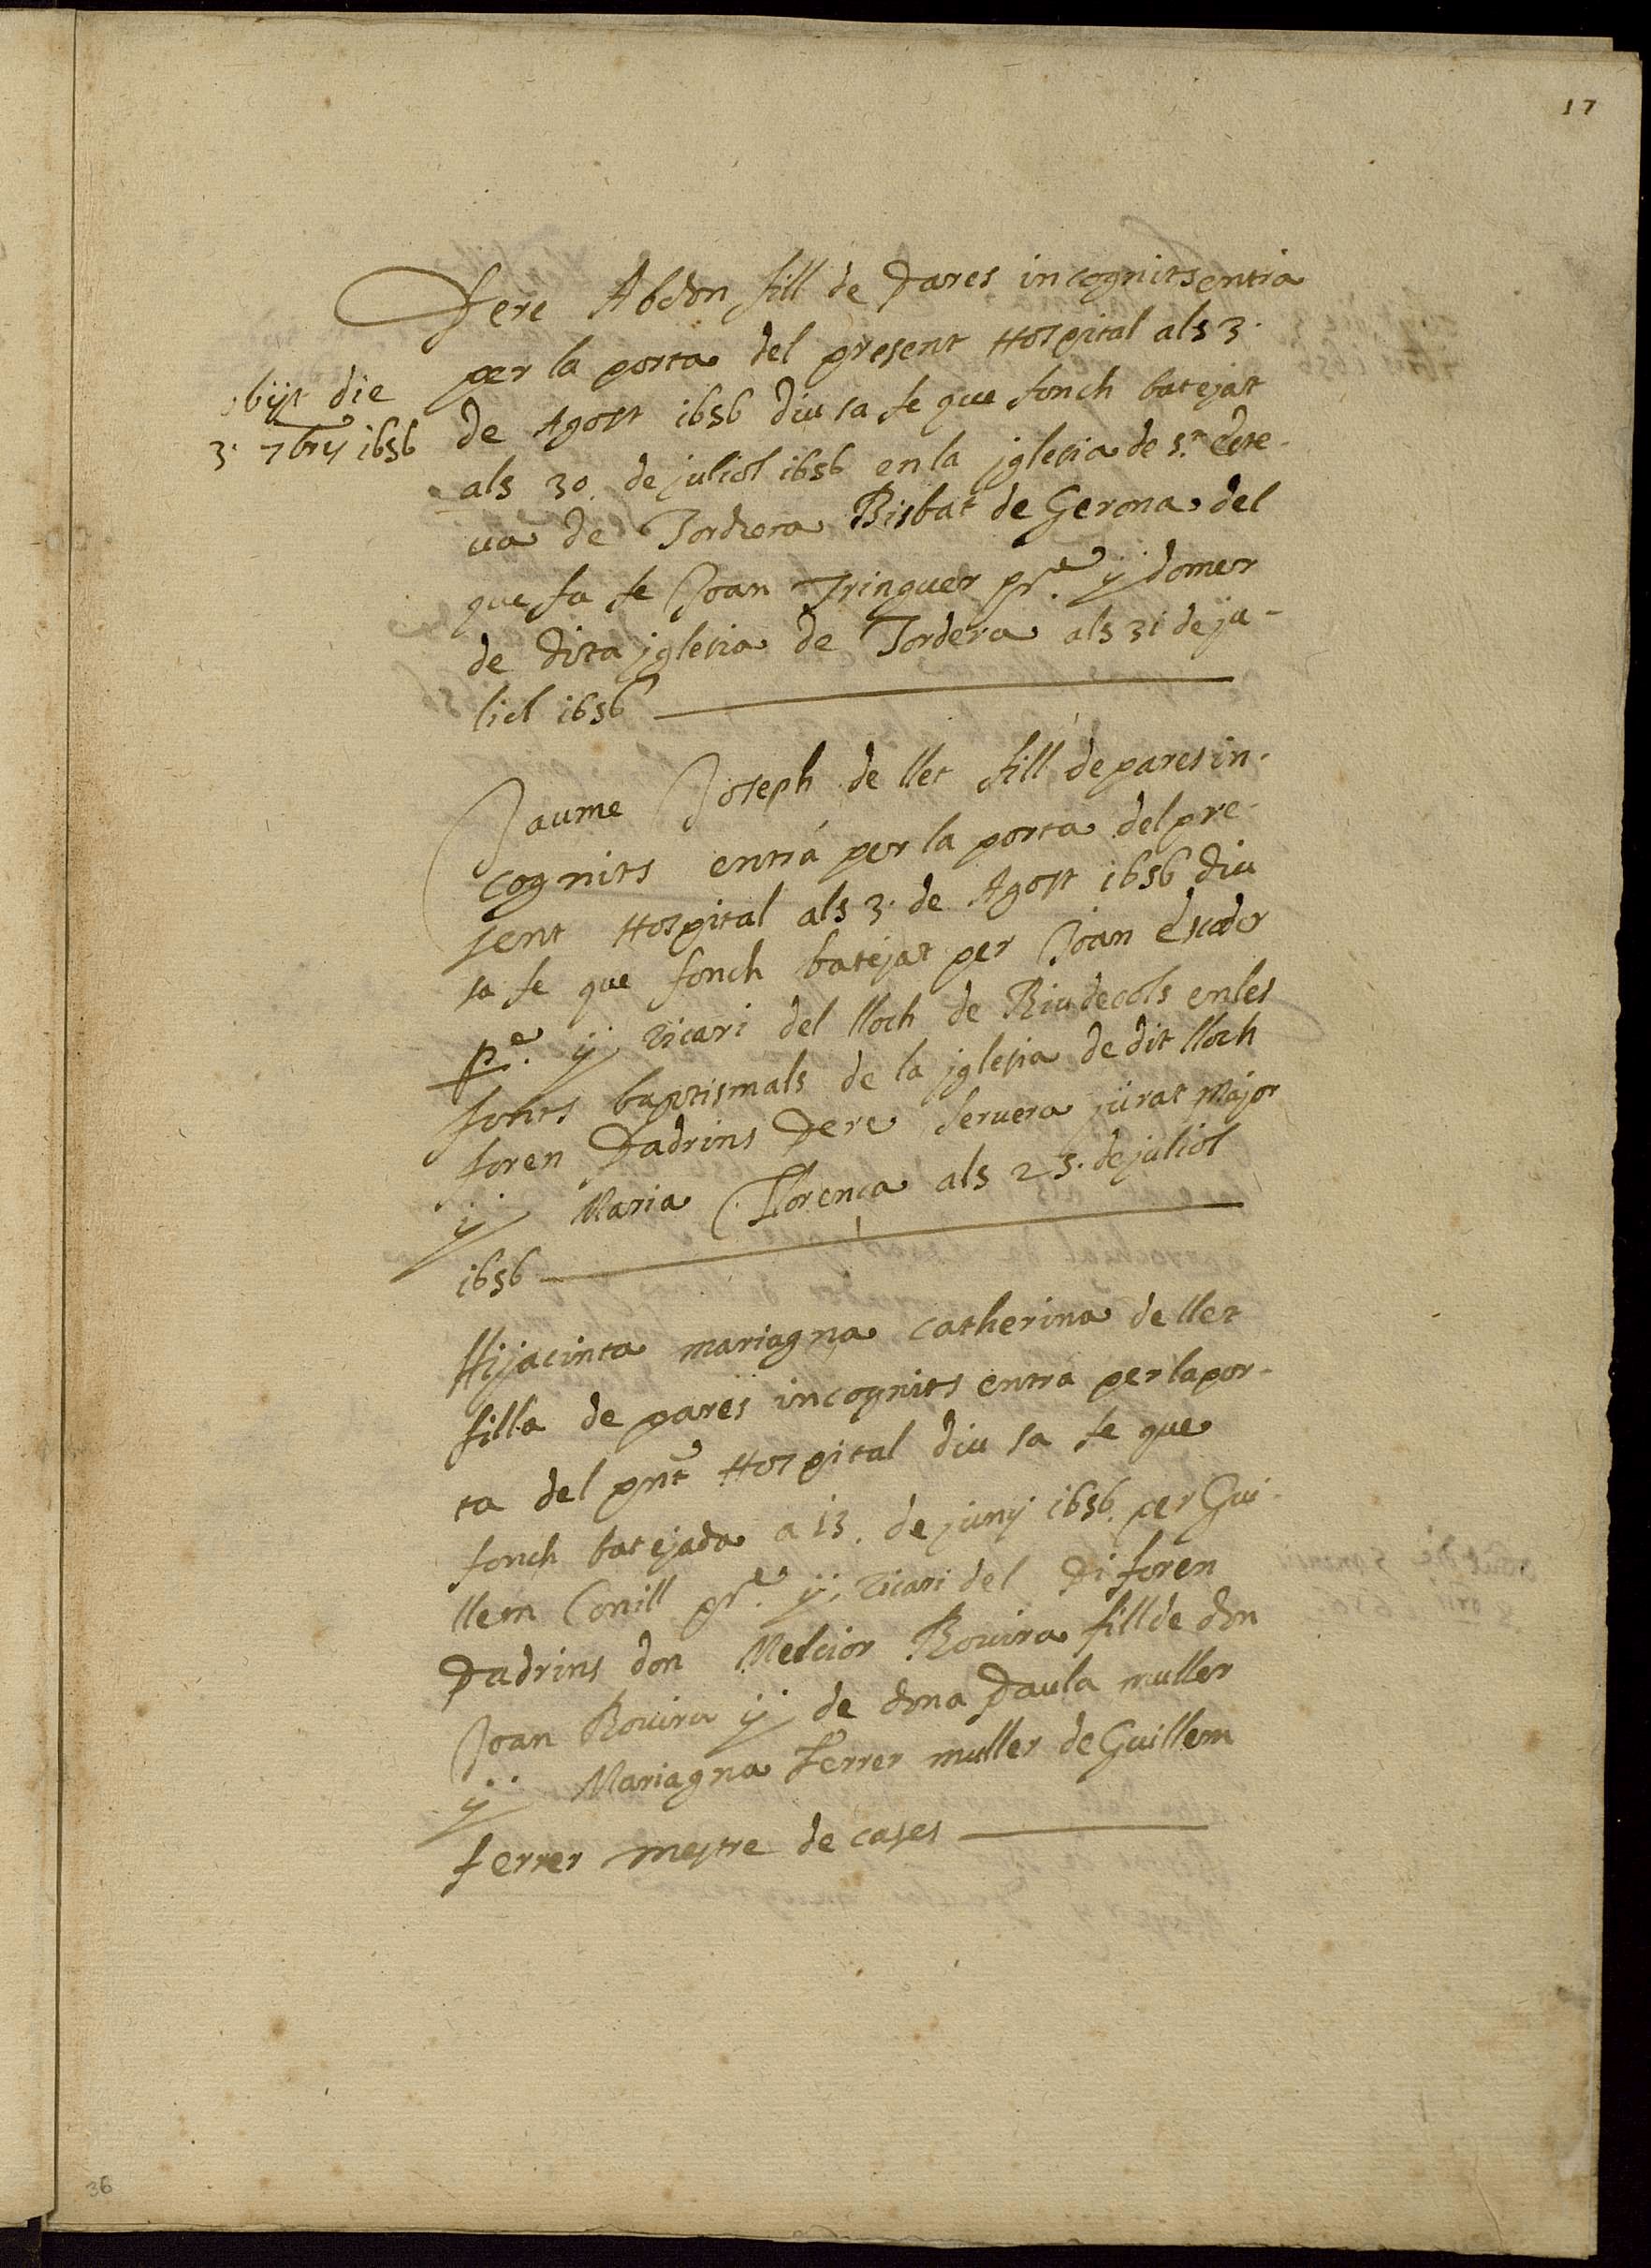 17
Pere Abdon fill de Pares incognits entra
per la porta del present Hospital als 3.
de Agost 1656 diu sa fe que fonch batejat
als 30. de juliol 1656 en la jglesia de St. Este-
va de Tordera Bisbat de Gerona del
que fa fe Joan Tringuer pre. y domer
de dita jglesia de Tordera als 31 de ju-
liol 1656
obijt die
3. 7bris 1656
Jaume Joseph de llet fill de pares in-
cognits entrá per la porta del pre-
sent Hospital als 3. de Agost 1656 diu
sa fe que fonch batejat per Joan
pe. y vicari del lloch de Riudecols en les
fonts baptismals de la jglesia de dit lloch
foren Padrins Pere Servera jurat major
y Maria Llorença als 25. de juliol
1656
Hijacinta mariagna catherina de llet
filla de pares incognits entra per la por-
ta del pnt Hospital diu sa fe que
fonch batejada a 13. de juny 1656. per Gui-
llem Conill pre. y vicari del Pi foren
Padrins don Melcior Rovira fill de don
Joan Rovira y de dona Paula muller
y Mariagna Ferrer muller de Guillem
Ferrer mestre de cases
36